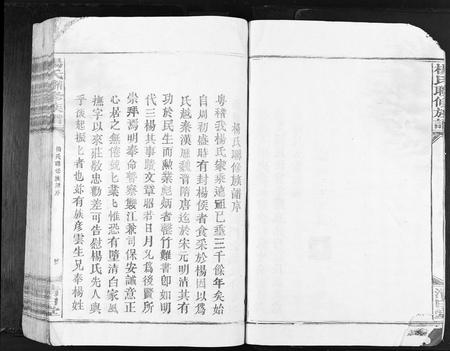 楊氏聯修族譜
楊氏聯修族譜序
粵稽我楊氏家乘遠溯已越三千餘年矣始
自周初盛時有封楊侯者食采於楊因以為
氏越秦漢歷魏晉隋唐迄於宋元明清其有
功於民生而勳業彪炳者罄竹難書即如明
代三楊其事蹟文章昭若日月允為後賢所
崇拜焉明奉命督察襲江兼司保安誠意正
心居之無倦競上業上惟恐有墮清白家風
撫字以來莊敬忠勤差可告慰楊氏先人與
乎後起楊上者也茲有族彥雲生兄奉楊姓
楊氏聯修族譜序